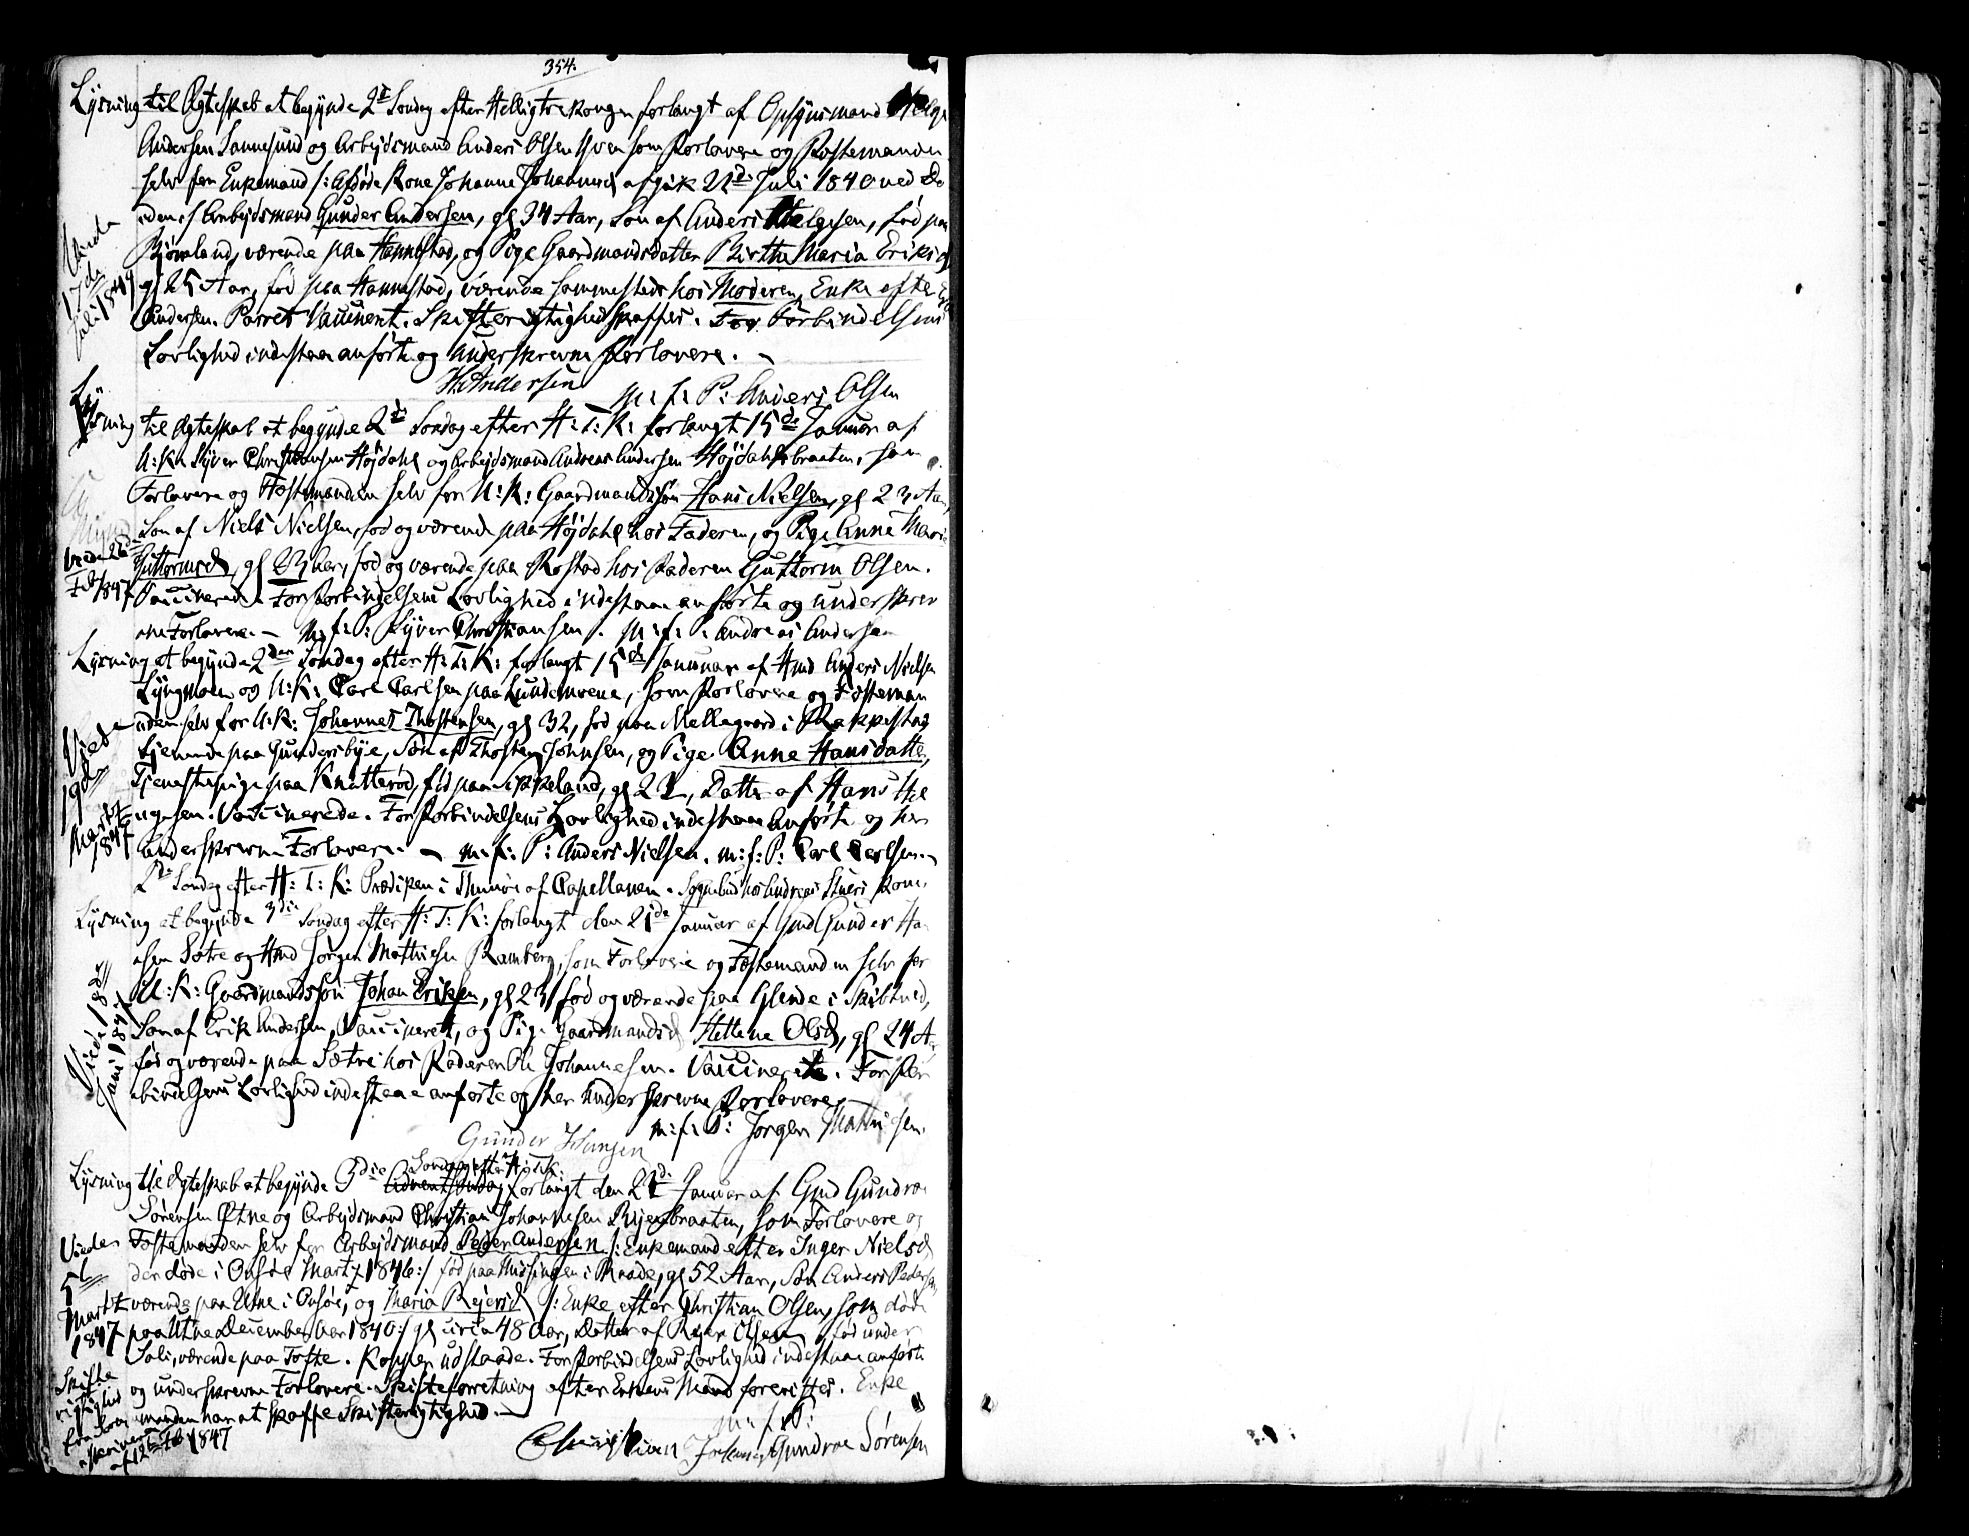 354.
Lysning til Ægteskab at begynde 2de Søndag efter Helligtrekonger forlangt af Opsynsmand Helge
Andersen Sannesund og Arbejdsmand Anders Olsen som Forlovere og Festemanden
selv for Enkemand /: Afdøde Kone Johanne Johannesd afgik 21de Juli 1840 ved Dø
den :/ Arbejdsmand Gunder Andersen, gl 34 Aar, Søn af Anders Helgesen, fød paa
Bjørnland, værende paa Hannestad, og Pige Gaardmandsdatter Birthe Maria Eriksd
gl 25 Aar, fød paa Hannestad, værende sammesteds hos Moderen, Enke efter Erik
Andersen. Parret Vaccinert. Skifterigtighed skaffes. For Forbindelsens
Lovlighed indestaae anførte og underskrevne Forlovere. –
Viede
17de
Juli 1849
H. Andersen m. f. P: Anders Olsen
Lysning til Ægteskab at begynde 2de Søndag efter H: T: K: forlangt 15de Januar af
U: K: Syver Christiansen Højdahl og Arbejdsmand Andreas Andersen Højdahlsbraaten, som
Forlovere og Festemanden selv for U: K: Gaardmandssøn Hans Nielsen, gl 23 Aar,
Søn af Niels Nielsen, fød og værende paa Højdahl hos Faderen, og Pige Anne Marie
Guttormsd, gl Aar, fød og værende paa Rostad hos Faderen Guttorm Olsen.
Vaccinerede. For Forbindelsens Lovlighed indestaae anførte og underskrev
ne Forlovere. – m: f: P: Syver Christiansen. m: f: P. Andreas Andersen
Viede 26de
Feb 1847
Lysning at begynde 2den Søndag efter H: T: K: forlangt 15de Januar af Hmd Anders Nielsen
Lyngmoen og U: K: Carl Carlsen paa Lundemoene, som Forlovere og Festeman
den selv for U: K: Johannes Thostensen, gl 32, fød paa Mellegaard i Rakkestad
tjenende paa Gundersbye, Søn af Thosten Johnsen, og Pige Anne Hansdatter,
Tjenestepige paa Knatterød, fød paa Ekkeland, gl 21, Datter af Hans Hel
gesen. Vaccinerede. For Forbindelsens Lovlighed indestaae anførte og her
underskrevne Forlovere. – m: f: P: Anders Nielsen. m: f: P: Carl Carlsen. –
Viede
19de
Martz
1847
2de Søndag efter H: T: K: Prædiken i Thunøe af Capellanen. Sognebud hos Andreas Kone.
Lysning at begynde 3die Søndag efter H: T: K: forlangt den 21de Januar af Gmd Gunder Ha
nsen Sætre og Hmd Jørgen Mathisen Ramberg, som Forlovere og Festemanden selv for
U: K: Gaardmandssøn Johan Eriksen, gl 23, fød og værende paa Glende i Skibtved,
Søn af Erik Andersen, Vaccineret, og Pige Gaardmandsd Hellene Olsd, gl 24 Aar
fød og værende paa Sætre hos Faderen Ole Johannesen. Vaccinerede. For For
bindelsens Lovlighed indestaae anførte og her underskrevne Forlovere.
Viede 18de
Juni 1847
m: f: P: Jørgen Mathisen.
Gunder Hansen
Lysning til Ægteskab at begynde 3die Søndag efter H: T: K: forlangt den 21de Januar af Gmd Gundroe
Sørensen Ørne og Arbejdsmand Christian Johannesen Ryenbraaten, som Forlovere og
Festemanden selv for Arbejdsmand Peder Andersen /: Enkemand efter Inger Nielsd
der døde i Onsøe Martz 1846 :/ fød paa Missingen i Raade, gl 52 Aar, Søn Anders Pedersen
værende paa Utne i Onsøe, og Maria Rejersd /: Enke efter Christian Olsen, som døde
paa Utne December Aar 1840 :/ gl circa 48 Aar, Datter af Rejer Olsen, fød under
Soli, værende paa Tofte. Kopper udstaade. For Forbindelsens Lovlighed indestaae anførte
og underskrevne Forlovere. Skifteforretning efter Enkens Mand forevistes. Enke
manden har at skaffe Skifterigtighed. –
Vieder
5te
Martz
1847
Skifte
rigtighed
fra Sorenskriveren
af 12te Feb 1847
m: f: P:
Christian Johannes Gundroe Sørensen